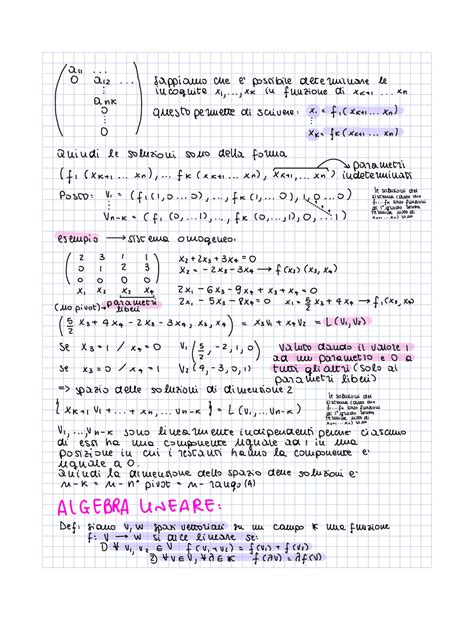 a₁₁ ...
0 a₁₂ ... sappiamo che e' possibile determinare le
incognite x₁,...,xₖ in funzione di xₖ₊₁ ... xₙ
aₙₖ
questo permette di scrivere: x₁ = f₁(xₖ₊₁ ... xₙ)
⋮
xₖ = fₖ(xₖ₊₁ ... xₙ)
Quindi le soluzioni sono della forma
(f₁(xₖ₊₁ ... xₙ), ... fₖ(xₖ₊₁ ... xₙ), xₖ₊₁, ... xₙ) → parametri indeterminati
Posto: V₁ = (f₁(1,0...0), ... fₖ(1,...0), 1,0...0)
⋮
Vₙ₋ₖ = (f₁(0,...1), ... fₖ(0,...,1), 0,...1)
le soluzioni del
sistema
esempio → sistema omogeneo:
2 3 1 1
0 1 2 3
0 0 0 0
x₁ x₂ x₃ x₄
x₂ + 2x₃ + 3x₄ = 0
x₂ = -2x₃ - 3x₄ → f(x₂)(x₃, x₄)
(no pivot) → parametri liberi
2x₁ - 6x₃ - 9x₄ + x₃ + x₄ = 0
2x₁ - 5x₃ - 8x₄ = 0 x₁ = 5/2 x₃ + 4x₄ → f₁(x₃, x₄)
(5/2 x₃ + 4x₄ - 2x₃ - 3x₄, x₃, x₄) = x₃V₁ + x₄V₂ = L(V₁, V₂)
Se x₃ = 1 / x₄ = 0 V₁(5/2, -2, 1, 0)
Se x₃ = 0 / x₄ = 1 V₂(4, -3, 0, 1)
valuto dando il valore 1
ad un parametro e 0 a
tutti gli altri (solo ai
parametri liberi)
=> spazio delle soluzioni di dimensione 2
{xₖ₊₁ V₁ + ... + xₙ, ... Vₙ₋ₖ} = L(V₁, ... Vₙ₋ₖ)
le soluzioni del
sistema
V₁, ..., Vₙ₋ₖ sono linearmente indipendenti perche ciascuno
di essi ha una componente uguale ad 1 in una
posizione in cui i restanti hanno la componente e'
uguale a 0.
Quindi la dimensione dello spazio delle soluzioni e'
n-k = n - n° pivot = n - rango(A)
ALGEBRA LINEARE:
Def: siano V, W spazi vettoriali su un campo K una funzione
f: V → W si dice lineare se:
1) ∀ v₁, v₂ ∈ V f(v₁ + v₂) = f(v₁) + f(v₂)
2) ∀ v ∈ V, ∀ λ ∈ K f(λv) = λf(v)